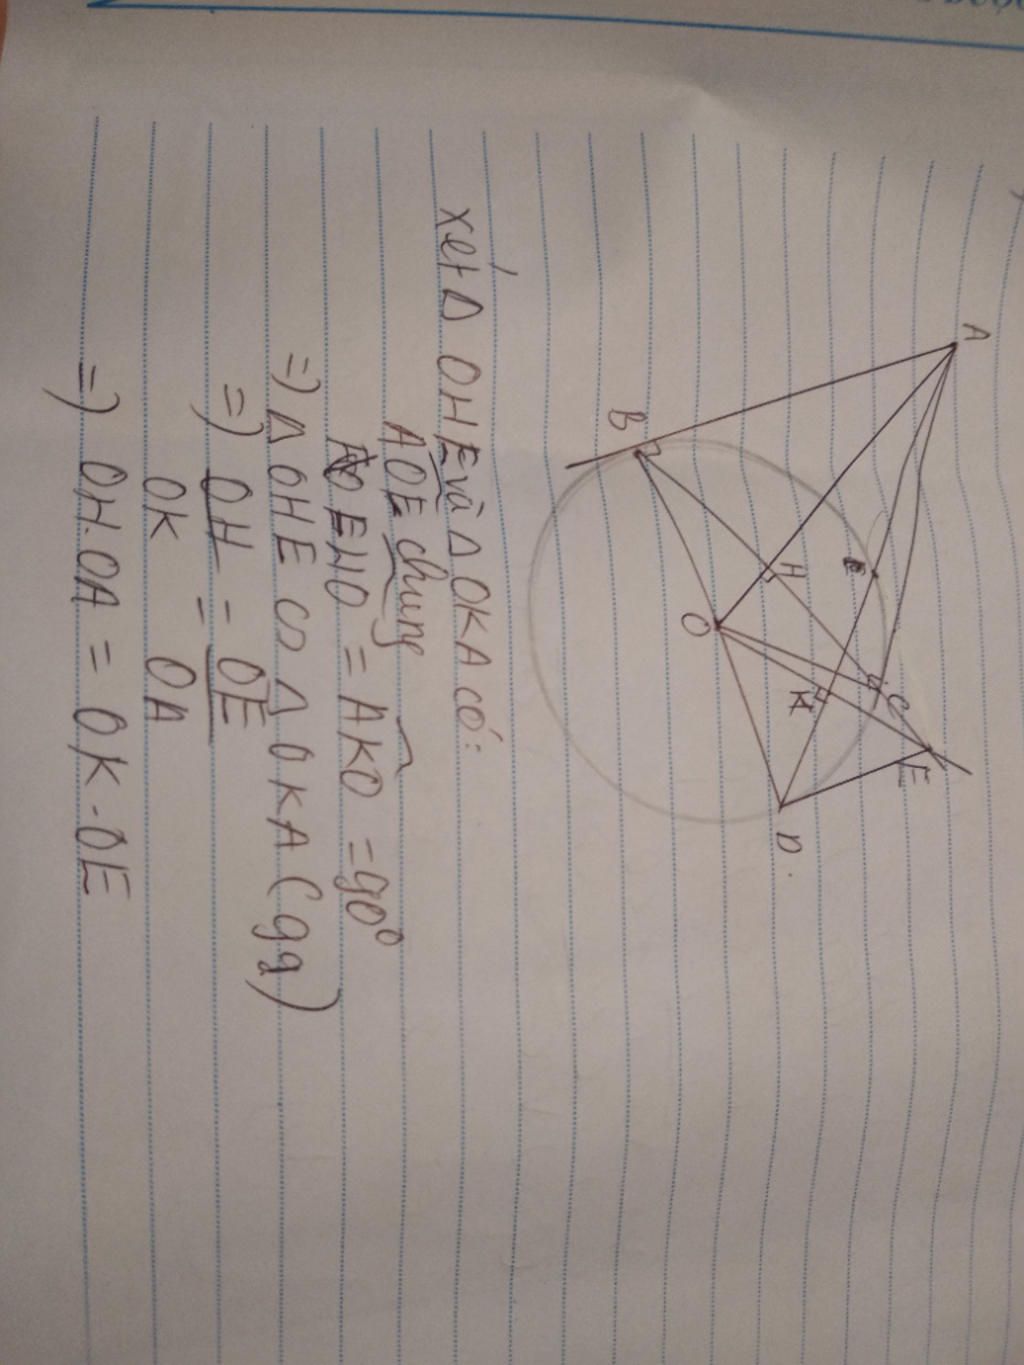 A
B
E
H
O
C
K
E
D
xét Δ OHE và Δ OKA có:
AOE chung
EHO = AKO = 90°
=) Δ OHE ∽ Δ OKA (gg)
=) OH = OE
OK OA
=) OH.OA = OK.OE